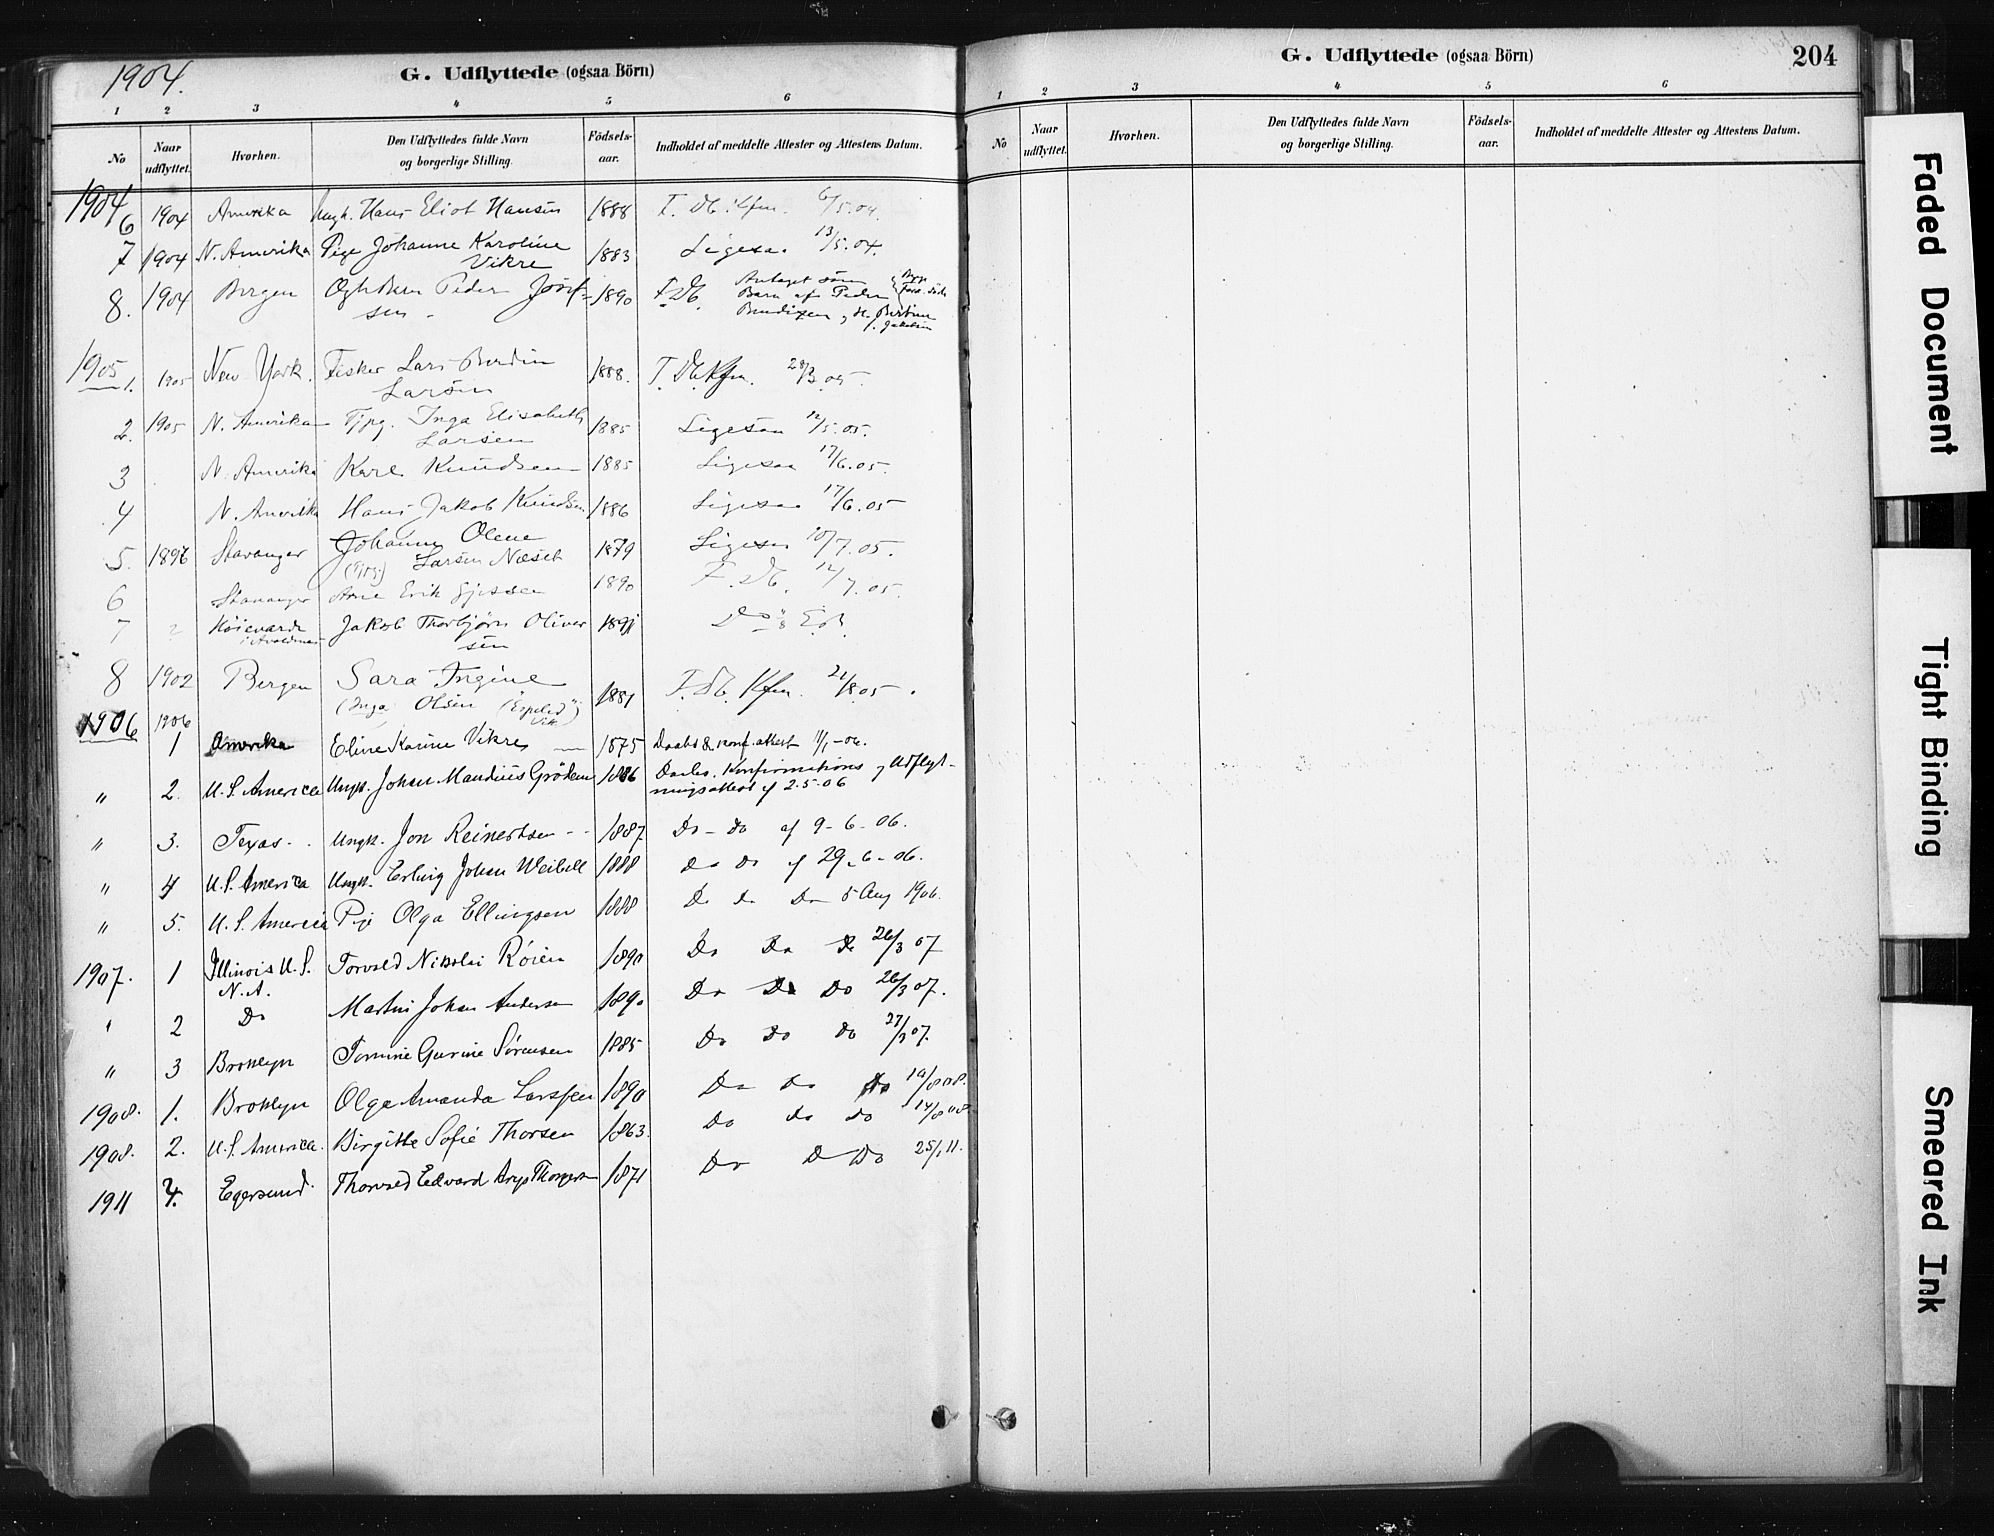 1904.
G. Udflyttede (ogsaa Börn)
1 2 3 4 5 6
No
Naar udflyttet.
Hvorhen.
Den Udflyttedes fulde Navn
og borgerlige Stilling.
Födsels-
aar.
Indholdet af meddelte Attester og Attestens Datum.
1904
6 1904 Amerika Ungk. Hans Eliot Hansen 1888 F. Db. Kfm. 6/5.04.
7 1904 N. Amerika Pige Johanne Karoline 1883 Ligesaa 13/5.04.
Vikre
8. 1904 Bergen Peder 1890 F. Db. Antaget som
sen Barn af Peder
Bendixen
1905
1. 1905 New York. Fisker Lars Berdin 1888. F. Db. Kfm. 28/3.05.
Larsen
2. 1905 N. Amerika Inga Elisabeth 1885 Ligesaa 12/5.05.
Larsen
3 N. Amerika Karl Knudsen 1885 Ligesaa 17/6.05.
4 N. Amerika Hans Jakob Knudsen 1886 Ligesaa 17/6.05
5. Stavanger Johanne Olene 1879 Ligesaa 10/7.05.
Larsen Næset
6 Stavanger Arne Erik Gjessen 1890 F. Db. 12/7.05.
7 Jakob Thorbjørn Oliver
i Avaldsnes sen
8 1902 Bergen Sara Ingine 1881 F. Db. Kfm. 21/8.05.
(Inga Olsen
1906 1906
1 Amerika Eline Karine Vikre 1875 Daabs & konf. attest 11/1-06.
" 2. U.S. America Ungk. Johan Mandius Grödem 1886 Daabs. Konfirmations og Udflyt-
ningsattest af 2-5-06
" 3. Texas Ungk. Jon Reinertsen 1887 Do - Do af 9-6-06.
" 4 U.S. America Ungk. Erling Johan Weibell 1888 Do Do af 29-6-06.
" 5. U.S. America Pige Olga Ellingsen 1888 Do Do Do 5 Aug 1906.
1907. 1 Illinois U.S. Torvald Nikolai Röien 1890 Do Do Do 26/3 07
N.A.
" 2 Do Martin Johan Andersen 1890 Do Do Do 26/3 07.
" 3 Broklyn Tomine Gurine Sörensen 1885 Do Do Do 27/3 07.
1908. 1. Broklyn Olga Amanda Larssen 1890 Do Do Do 19/8 08.
1908. 2. U.S. America. Birgitte Sofie Thorsen 1863. Do Do Do 14/8 08
1911 4. Egersund Thorvald Edvard 1871 Do D Do 25/1 11.
G. Udflyttede (ogsaa Börn)
204
1 2 3 4 5 6
No
Naar udflyttet.
Hvorhen.
Den Udflyttedes fulde Navn
og borgerlige Stilling.
Födsels-
aar.
Indholdet af meddelte Attester og Attestens Datum.
Faded Document
Tight Binding
Smeared Ink